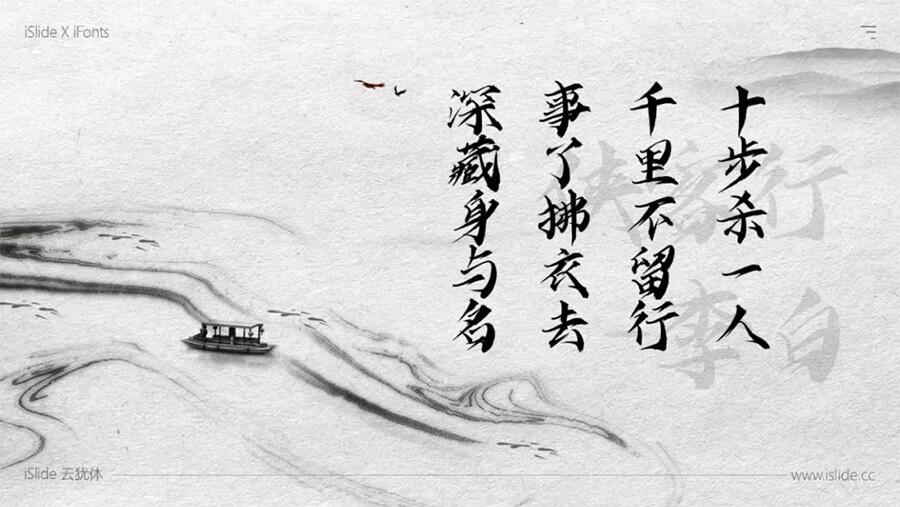 iSlide X iFonts
十步杀一人
千里不留行
事了拂衣去
深藏身与名
侠客行
李白
iSlide 云犹休
www.islide.cc